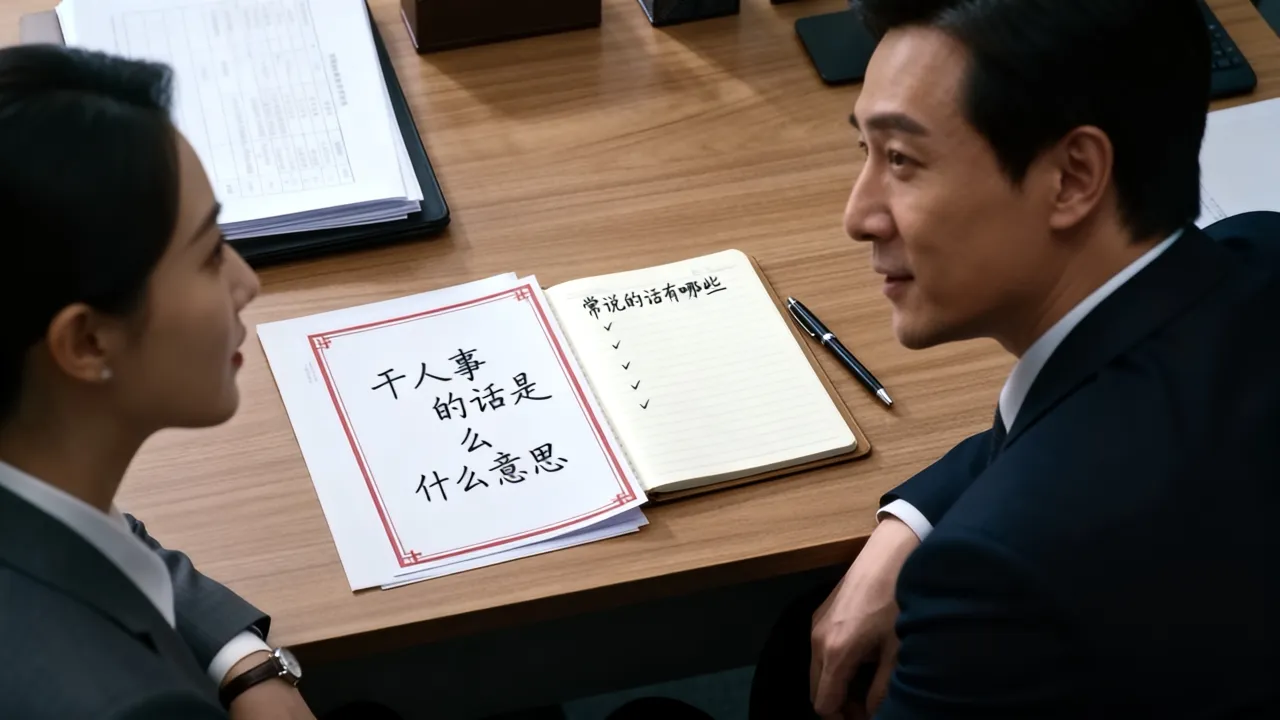 干人事
的话是
么
什么意思
常说的话有哪些